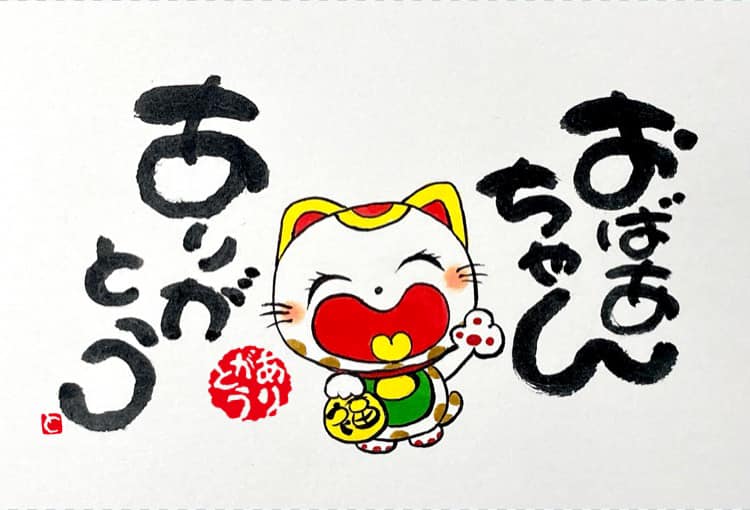 おばあ
ちゃん
あり
がとう
ありがとう
と